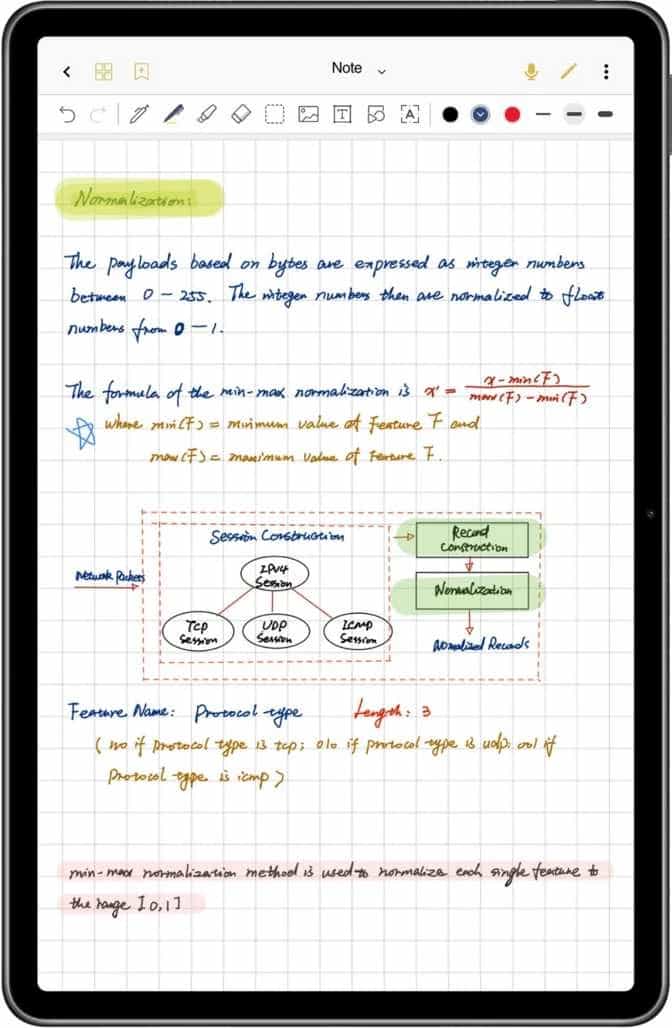 Note
Normalization:
The payloads based on bytes are expressed as integer numbers
between 0 - 255. The integer numbers then are normalized to float
numbers from 0 - 1.
The formula of the min-max normalization is x' = x - min(F) / max(F) - min(F)
where min(F) = minimum value of Feature F and
max(F) = maximum value of Feature F.
Session Construction
Record
Construction
Network Packets
IPV4
Session
Normalization
TCP
Session
UDP
Session
ICMP
Session
Normalized Records
Feature Name: Protocol type Length: 3
( no if protocol type is tcp; 010 if protocol type is udp; 001 if
Protocol type is icmp )
min-max normalization method is used to normalize each single feature to
the range [0,1]